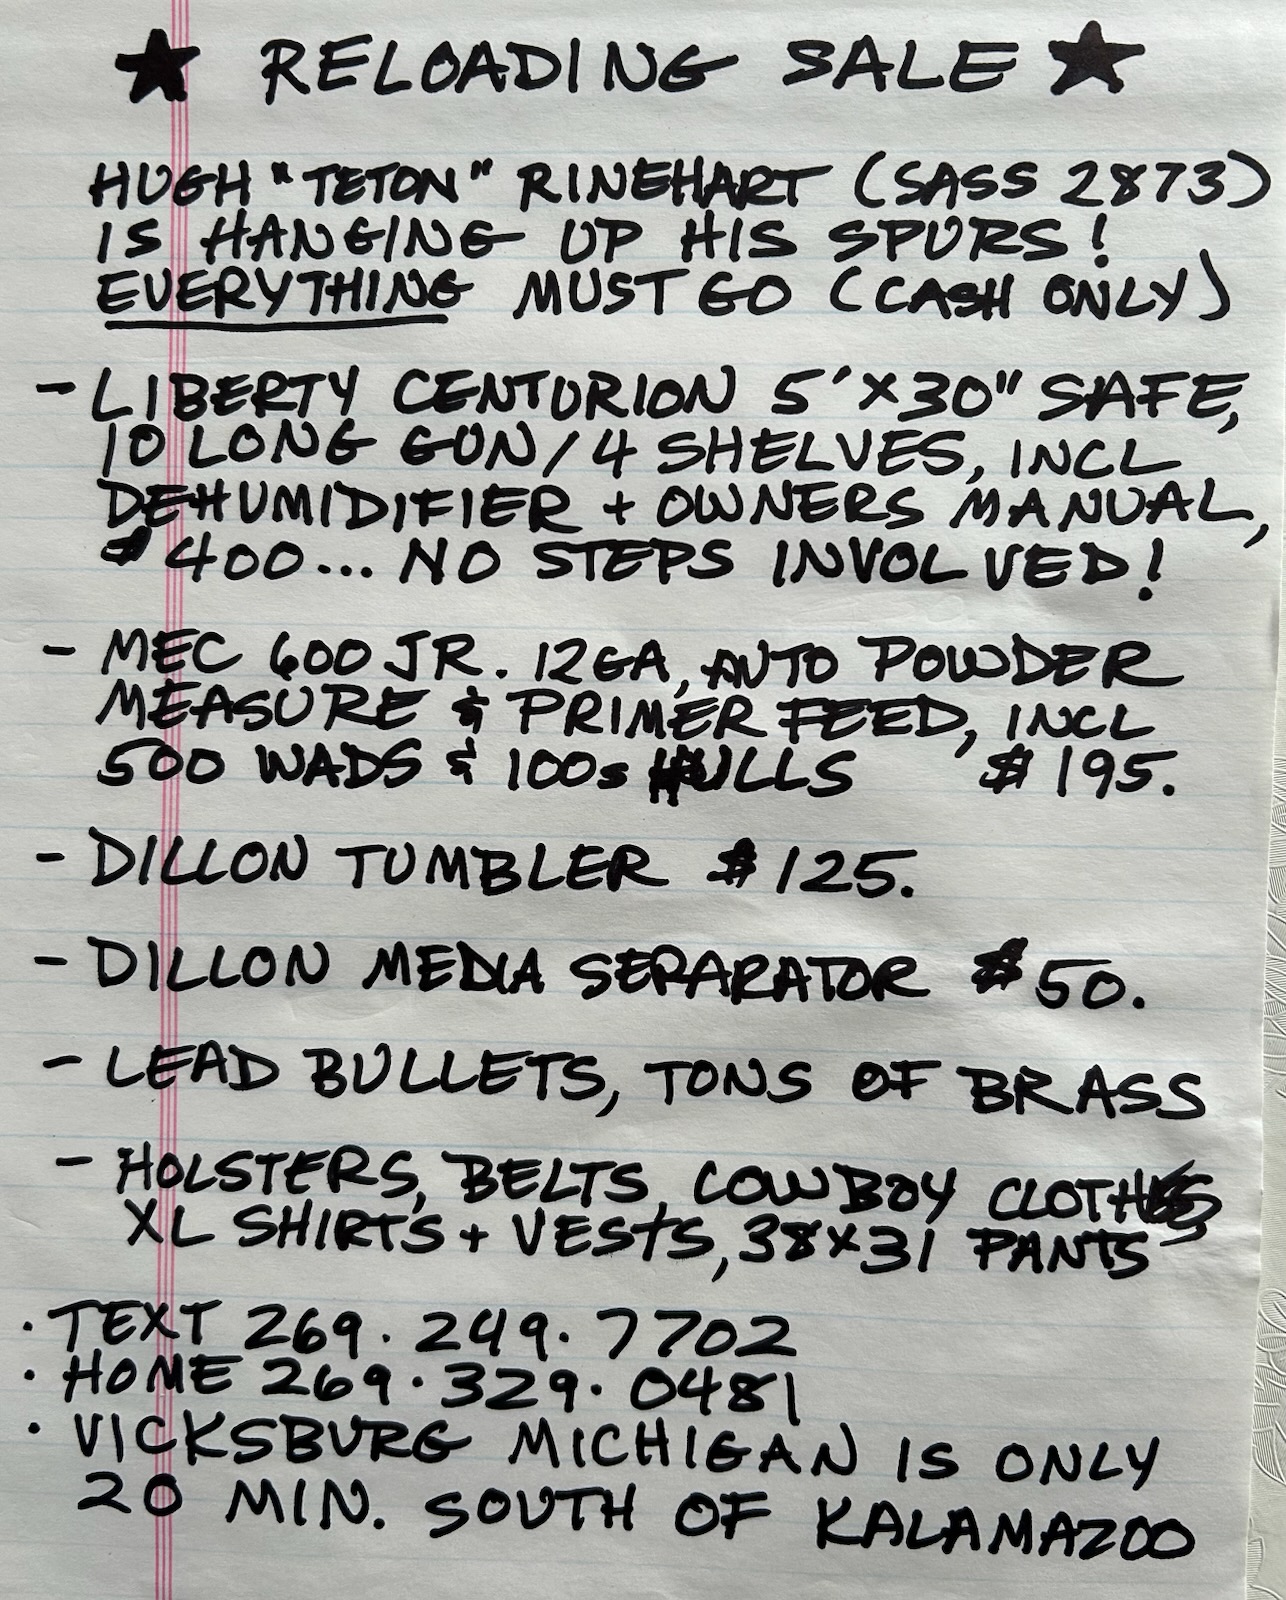 ★ RELOADING SALE ★
HUGH "TETON" RINEHART (SASS 2873)
IS HANGING UP HIS SPURS!
EVERYTHING MUST GO (CASH ONLY)
- LIBERTY CENTURION 5'X30" SAFE,
10 LONG GUN/4 SHELVES, INCL
DEHUMIDIFIER + OWNERS MANUAL,
$400... NO STEPS INVOLVED!
- MEC 600 JR. 12GA, AUTO POWDER
MEASURE & PRIMER FEED, INCL
500 WADS & 100s HULLS $195.
- DILLON TUMBLER $125.
- DILLON MEDIA SEPARATOR $50.
- LEAD BULLETS, TONS OF BRASS
- HOLSTERS, BELTS, COWBOY CLOTHES
XL SHIRTS + VESTS, 38X31 PANTS
· TEXT 269.249.7702
· HOME 269.329.0481
· VICKSBURG MICHIGAN IS ONLY
20 MIN. SOUTH OF KALAMAZOO